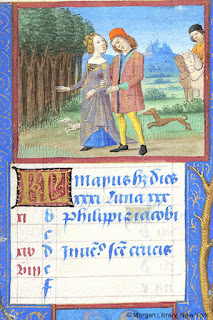 KL mayus hz dies
xxxi luna xxx
xi b philippi z iacobi
c
xiv d Inuēo scē crucis
viii e
f
© Morgan Library, New York